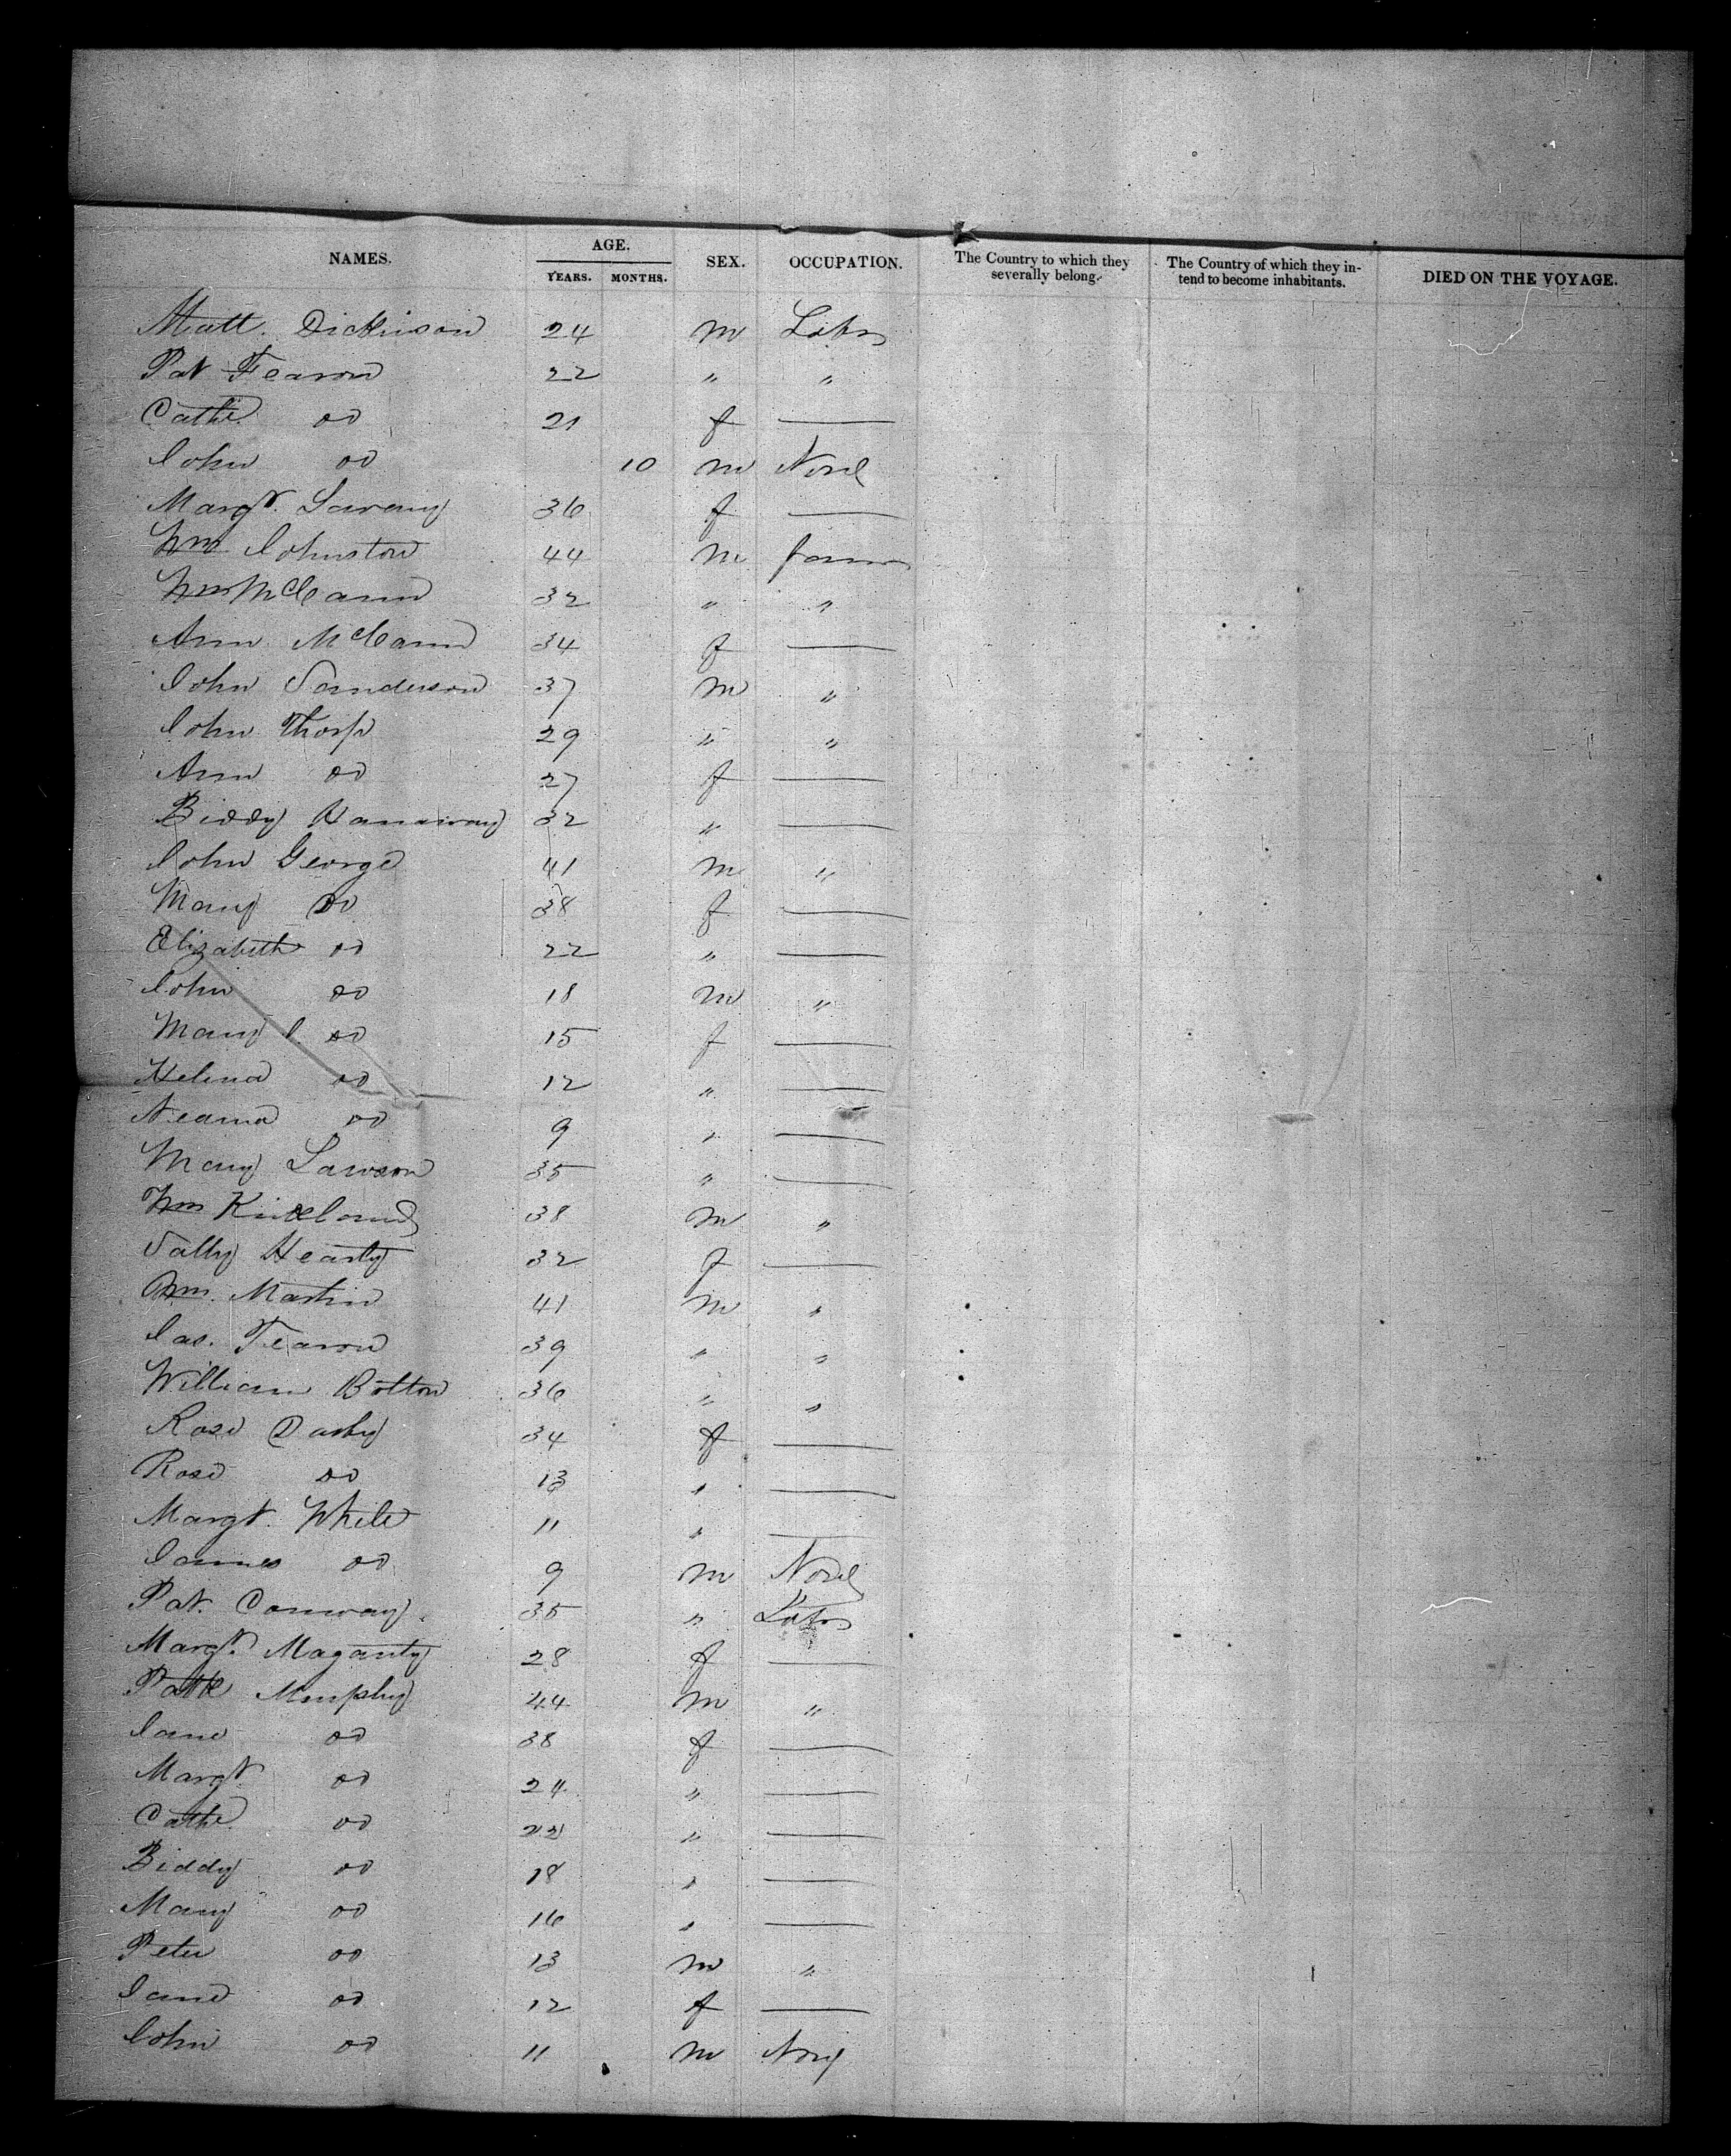 NAMES. AGE. YEARS. MONTHS. SEX. OCCUPATION. The Country to which they severally belong. The Country of which they intend to become inhabitants. DIED ON THE VOYAGE.
Matt. Dickinson 24 m Labr
Pat Fearon 22 " "
Cathe. do 21 f —
John do 10 m None
Margt. 36 f —
Wm Johnston 44 m farmr
Wm McCann 32 " "
Ann McCann 34 f —
John Sanderson 37 m "
John Thorp 29 " "
Ann do 27 f —
Biddy Hanaway 32 " —
John George 41 m "
Mary Do 38 f —
Elizabeth do 22 " —
John do 18 m "
Mary J. do 15 f —
Helena do 12 " —
do 9 " —
Mary Lawson 35 " —
Wm 38 m "
Sally Hearty 32 f —
Wm. Martin 41 m "
Jas. Fearon 39 " "
William Botton 36 " "
Rose Darby 34 f —
Rose do 13 " —
Margt. White 11 " —
James do 9 m None
Pat. Conway 35 " Labr
Margt. Maganty 28 f —
Patk Murphy 44 m "
Jane do 38 f —
Margt do 24 " —
Cathe. do 22 " —
Biddy do 18 " —
Mary do 16 " —
Peter do 13 m "
Jane do 12 f —
John do 11 m None